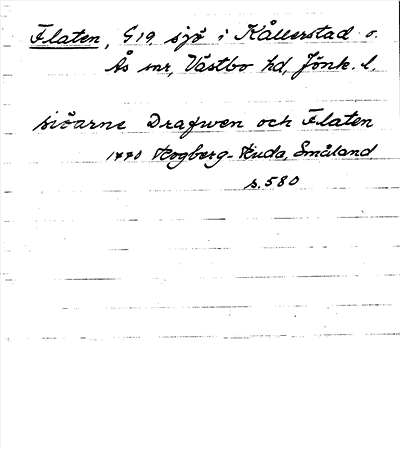 Flaten, G19, sjö i Kållerstad o.
Ås snr, Västbo hd, Jönk. l.
siöarne Drafwen och Flaten
1770 Rogberg-Ruda, Småland
s. 580